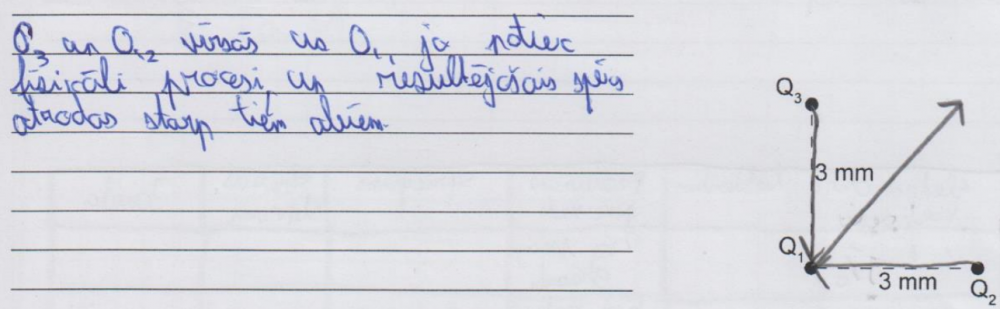 Q3 un Q2 virsās us Q1 jo notiec
fisikāli procesi, un resultējošais spēs
atrodas starp tiem abiem.
Q3
3 mm
Q1
3 mm
Q2